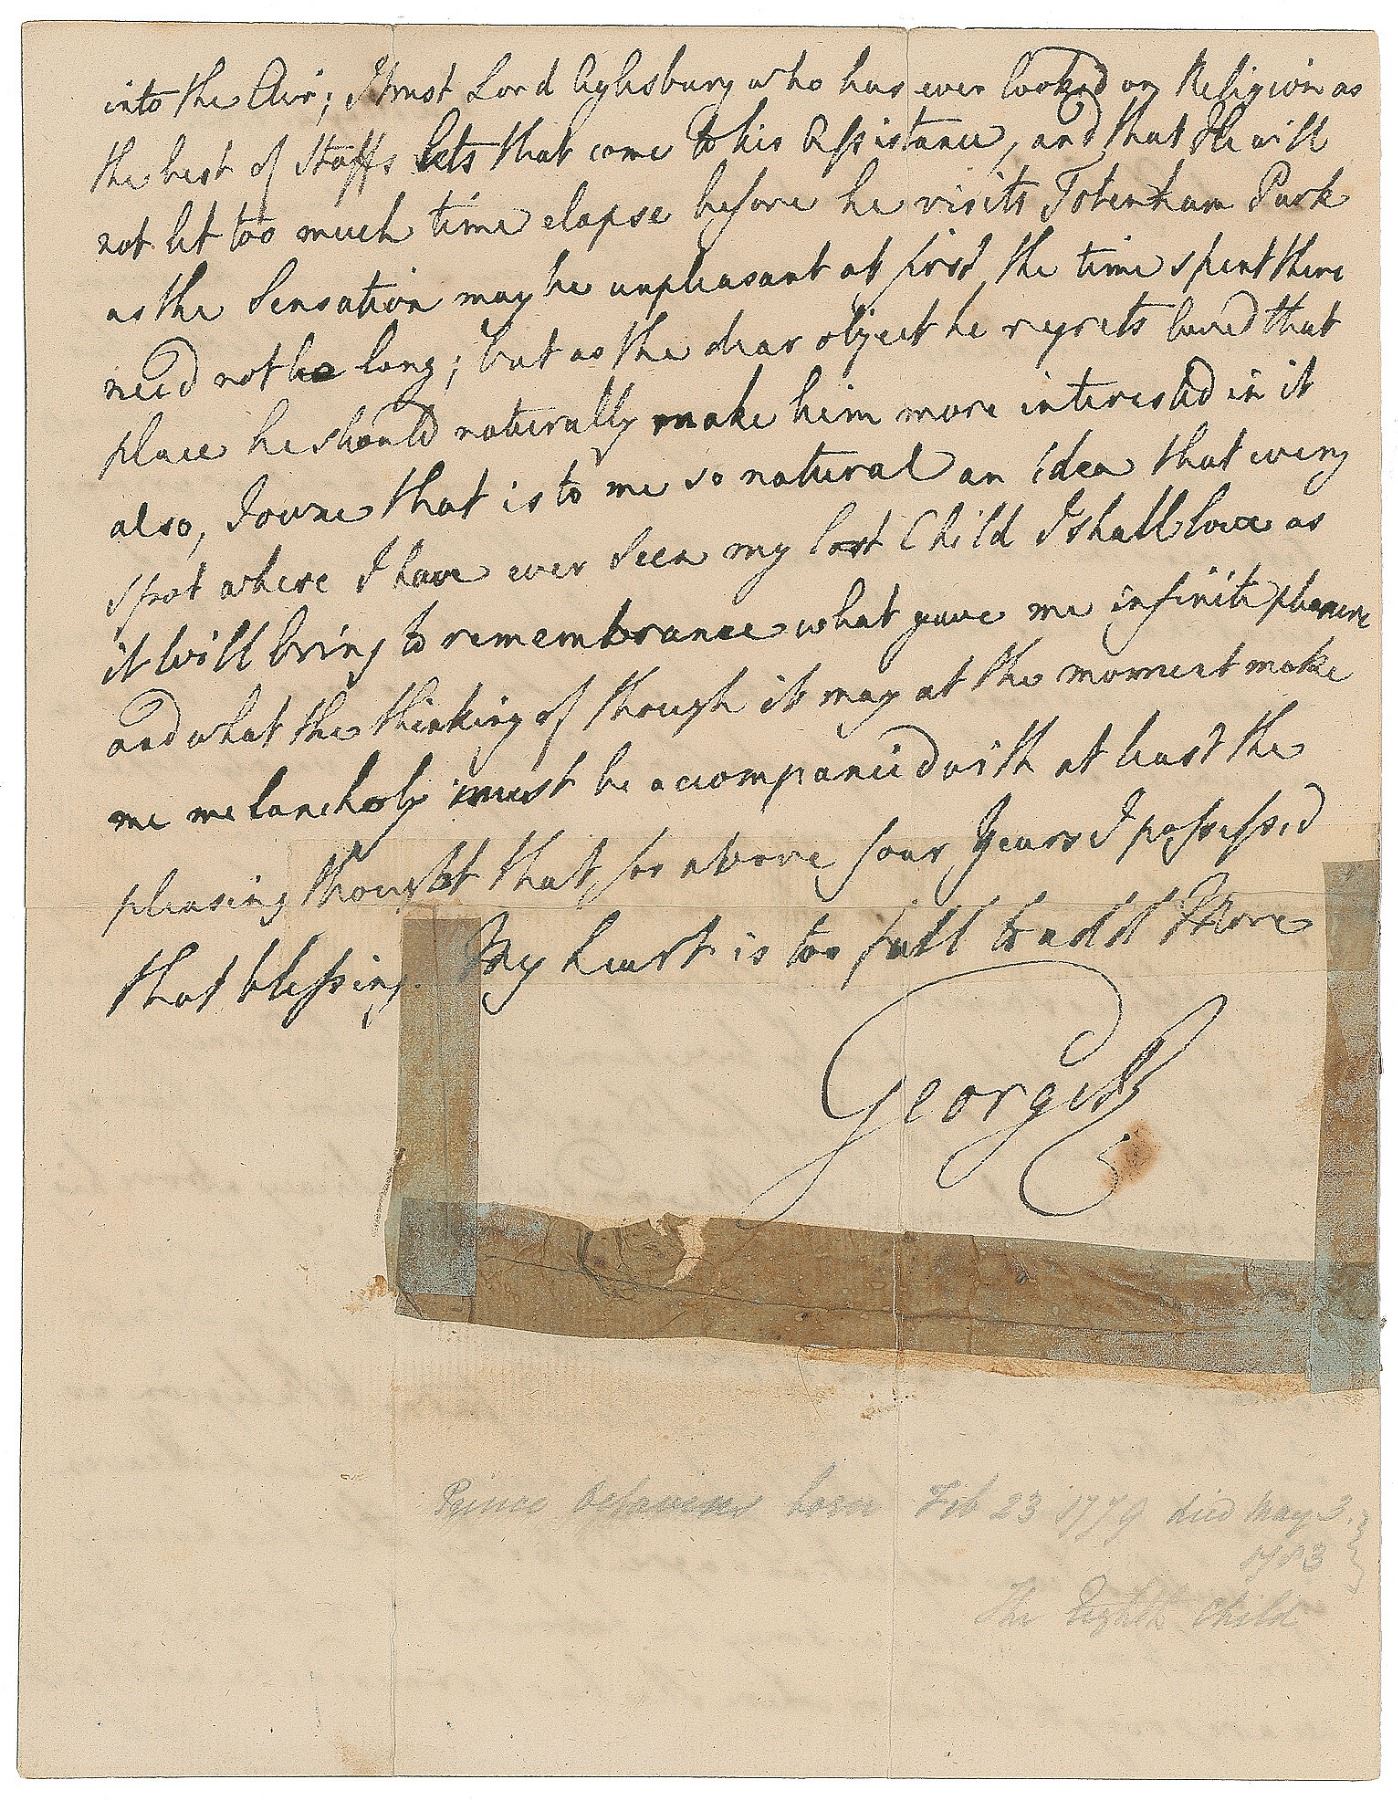 into the Air; I trust Lord Aylesbury who has ever looked on Religion as
the best of Staffs lets that come to his Assistance, and that He will
not let too much time elapse before he visits Totenham Park
as the Sensation may be unpleasant at first, the time spent there
need not be long; but as the dear object he regrets loved that
place he should naturally make him more interested in it
also, I owne that is to me so natural an idea that every
spot where I have ever seen my lost Child I shall love as
it will bring to remembrance what gave me infinite pleasure
and what the thinking of though it may at the moment make
me melancholy must be accompanied with at least the
pleasing thought that for above four Years I possessed
that blessing. My heart is too full to add More
George R
Prince Octavius born Feb 23 1779 died May 3.
1783
The Eighth Child